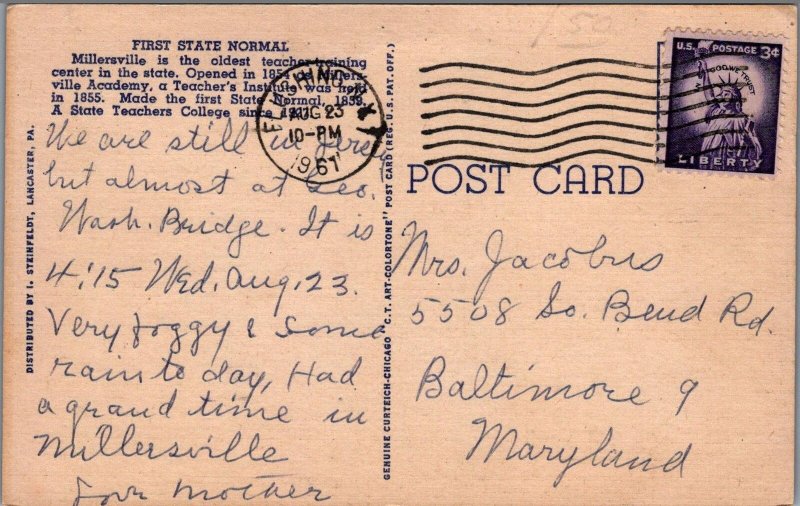 FIRST STATE NORMAL
Millersville is the oldest teacher training
center in the state. Opened in 1854 as Millers-
ville Academy, a Teacher's Institute was held
in 1855. Made the first State Normal, 1859.
A State Teachers College since
We are still in Jersey
but almost at Geo.
Wash. Bridge. It is
4:15 Wed. Aug. 23.
Very foggy & some
rain to day, Had
a grand time in
Millersville
Love Mother
FLUSHING N.Y.
AUG 23
10-PM
1961
U.S. POSTAGE 3¢
IN GOD WE TRUST
LIBERTY
POST CARD
Mrs. Jacobus
5508 So. Bend Rd.
Baltimore 9
Maryland
150
DISTRIBUTED BY I. STEINFELDT, LANCASTER, PA.
GENUINE CURTEICH-CHICAGO "C.T. ART-COLORTONE" POST CARD (REG. U.S. PAT. OFF.)